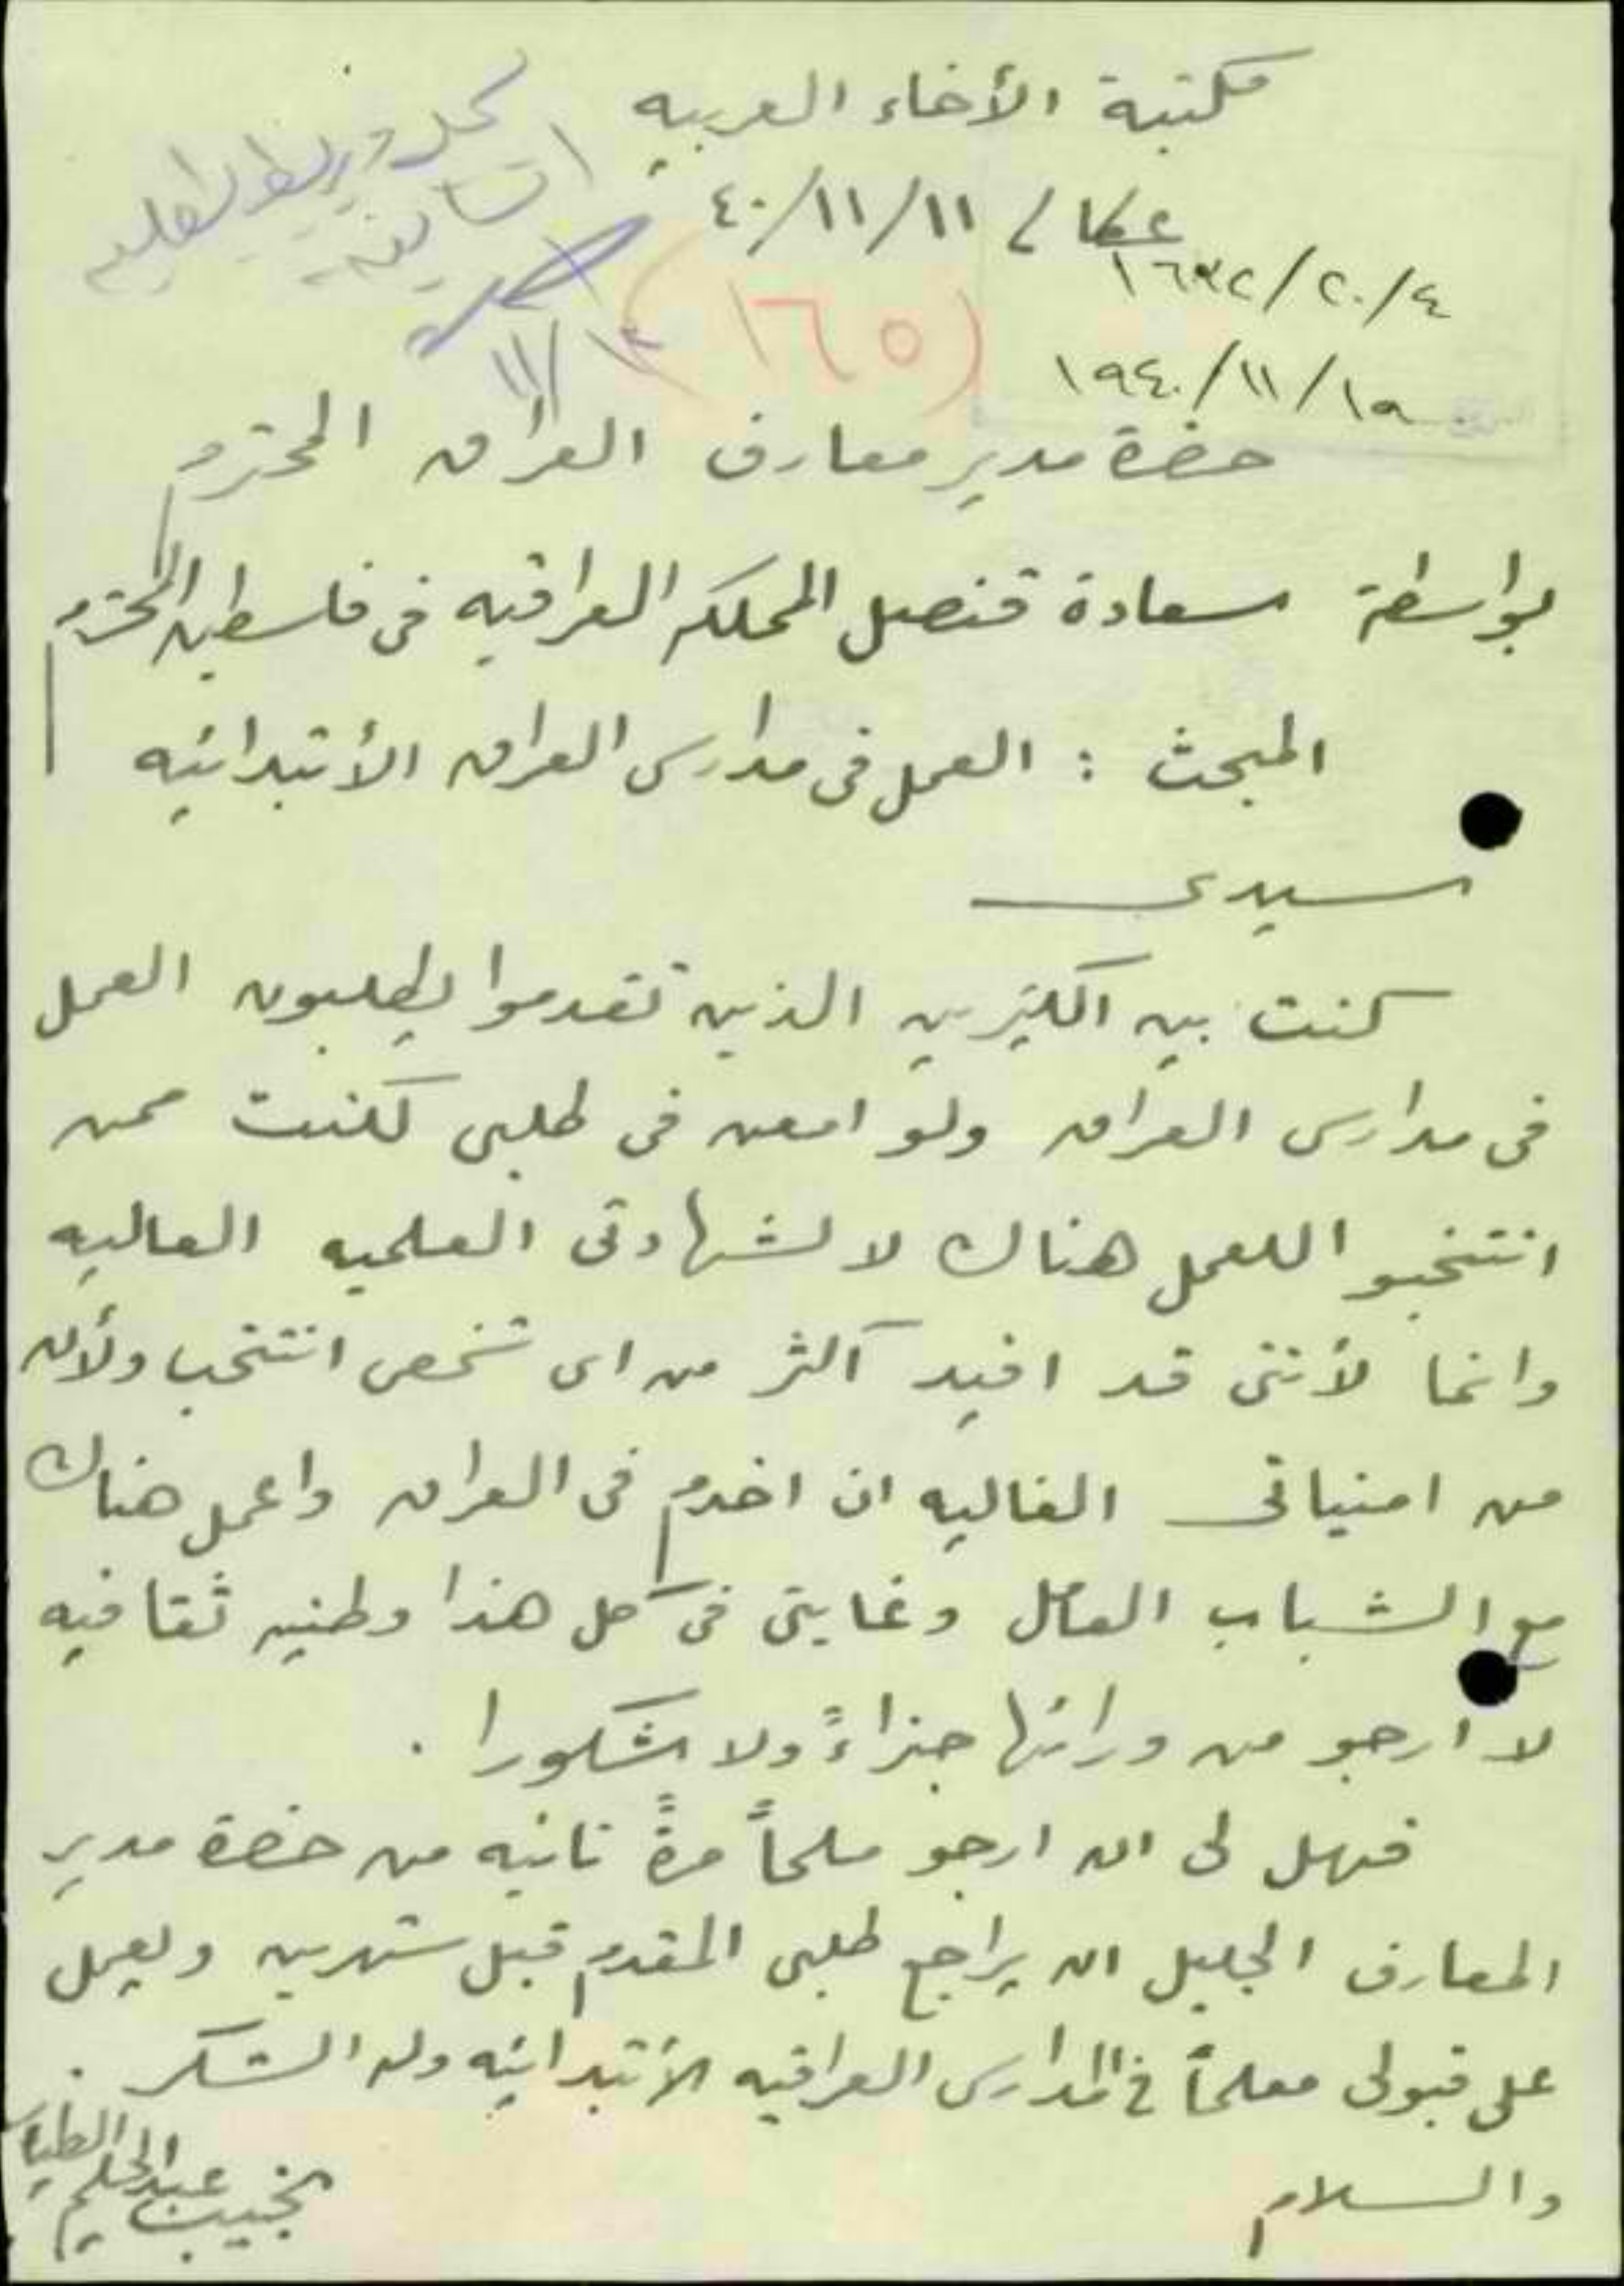 مكتبة الأخاء العربيه
عكا / ١١/١١/٤٠
٤/٢٠/١٦٩٢
١٩/١١/١٩٤٠
(١٦٥)
حضرة مدير معارف العراق المحترم
بواسطة سعادة قنصل المملكه العراقيه في فلسطين المحترم
المبحث : العمل في مدارس العراق الأبتدائيه
سيدي
كنت بين الكثيرين الذين تقدموا يطلبون العمل
في مدارس العراق ولو امعن في طلبي لكنت ممن
انتخبوا للعمل هناك لا لشهادتي العلميه العاليه
وانما لأنني قد افيد أكثر من اي شخص انتخب ولأن
من امنياتي الغاليه ان اخدم في العراق واعمل هناك
مع الشباب العامل وغايتي في كل هذا وطنيه ثقافيه
لا ارجو من ورائها جزاءً ولا شكورا .
فهل لي ان ارجو ملحاً مرةً ثانيه من حضرة مدير
المعارف الجليل ان يراجع طلبي المقدم قبل شهرين ويعمل
على قبولي معلماً في المدارس العراقيه الأبتدائيه وله الشكر .
والسلام
نجيب عبد الحليم الطيار